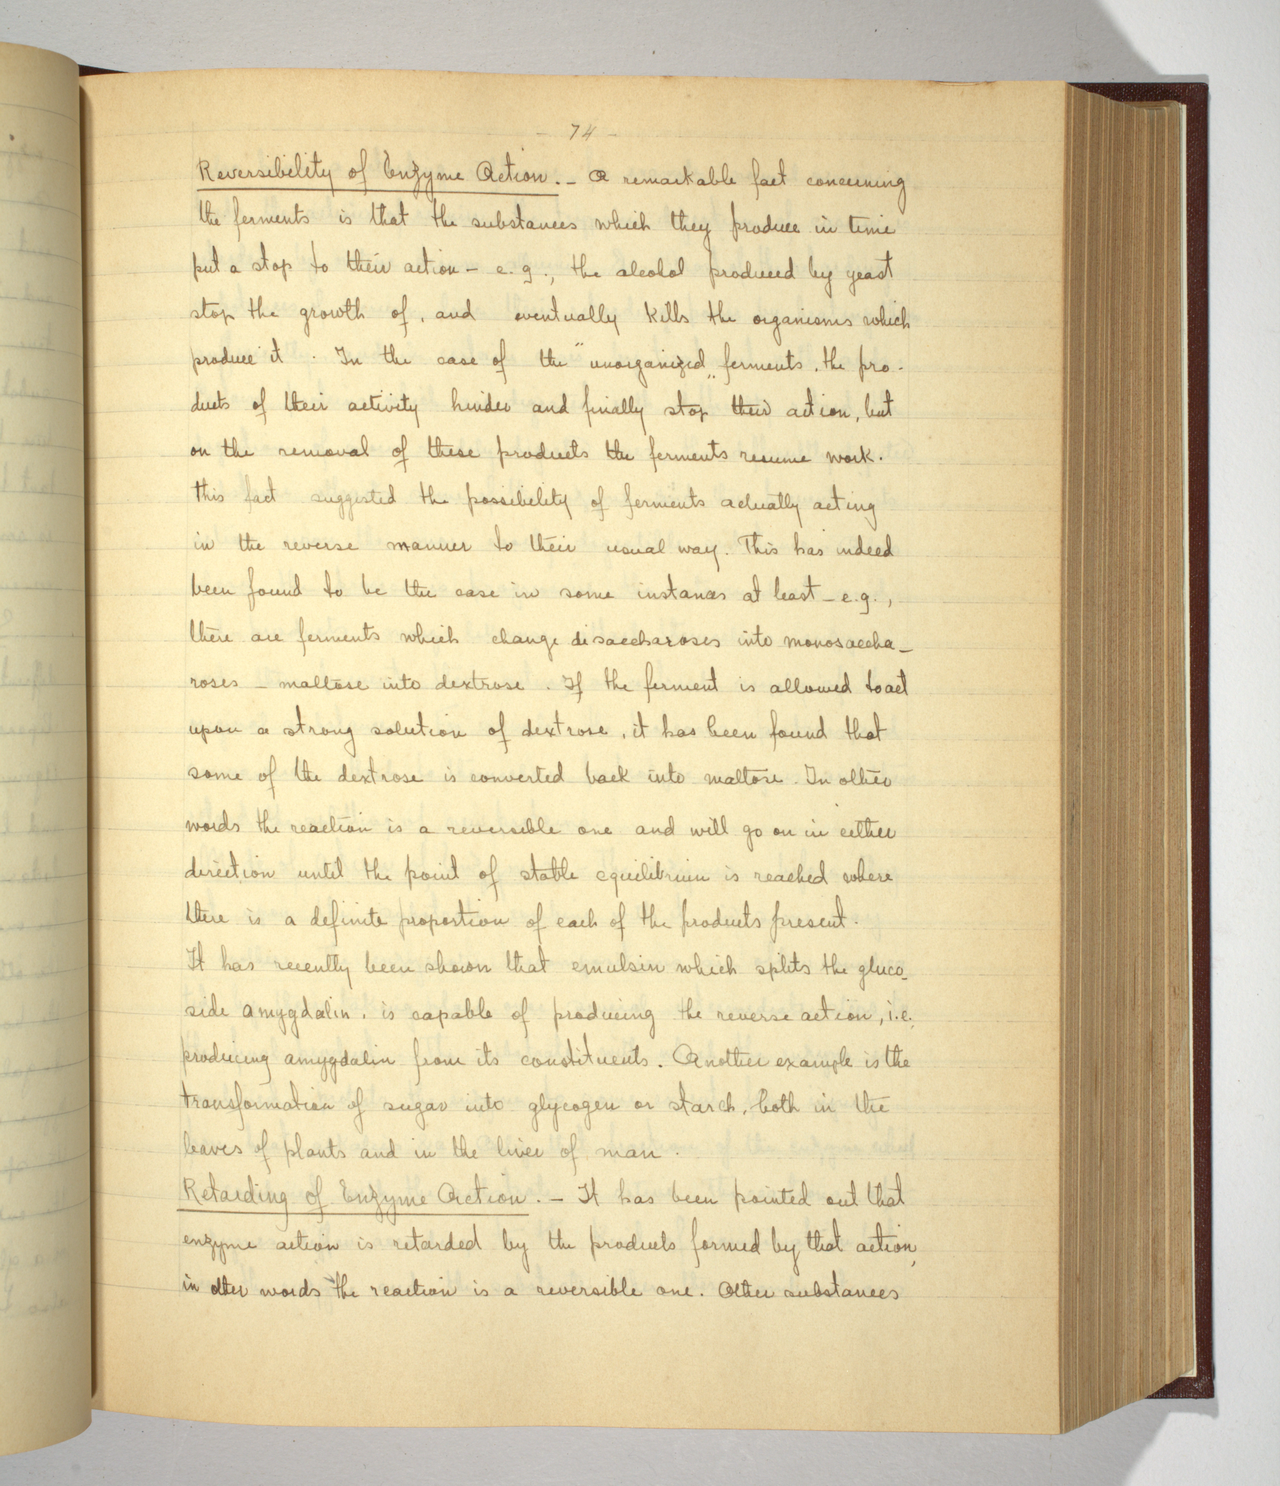 - 74 -
Reversibility of Enzyme Action. - A remarkable fact concerning
the ferments is that the substances which they produce in time
put a stop to their action - e.g., the alcohol produced by yeast
stop the growth of, and eventually kills the organisms which
produce it. In the case of the "unorganized„ ferments, the pro-
ducts of their activity hinder and finally stop their action, but
on the removal of these products the ferments resume work.
This fact suggested the possibility of ferments actually acting
in the reverse manner to their usual way. This has indeed
been found to be the case in some instances at least - e.g.,
there are ferments which change disaccharoses into monosaccha-
roses - maltose into dextrose. If the ferment is allowed to act
upon a strong solution of dextrose, it has been found that
some of the dextrose is converted back into maltose. In other
words the reaction is a reversible one and will go on in either
direction until the point of stable equilibrium is reached where
there is a definite proportion of each of the products present.
It has recently been shown that emulsin which splits the gluco-
side amygdalin, is capable of producing the reverse action, i.e.
producing amygdalin from its constituents. Another example is the
transformation of sugar into glycogen or starch, both in the
leaves of plants and in the liver of man.
Retarding of Enzyme Action. - It has been pointed out that
enzyme action is retarded by the products formed by that action,
in other words the reaction is a reversible one. Other substances